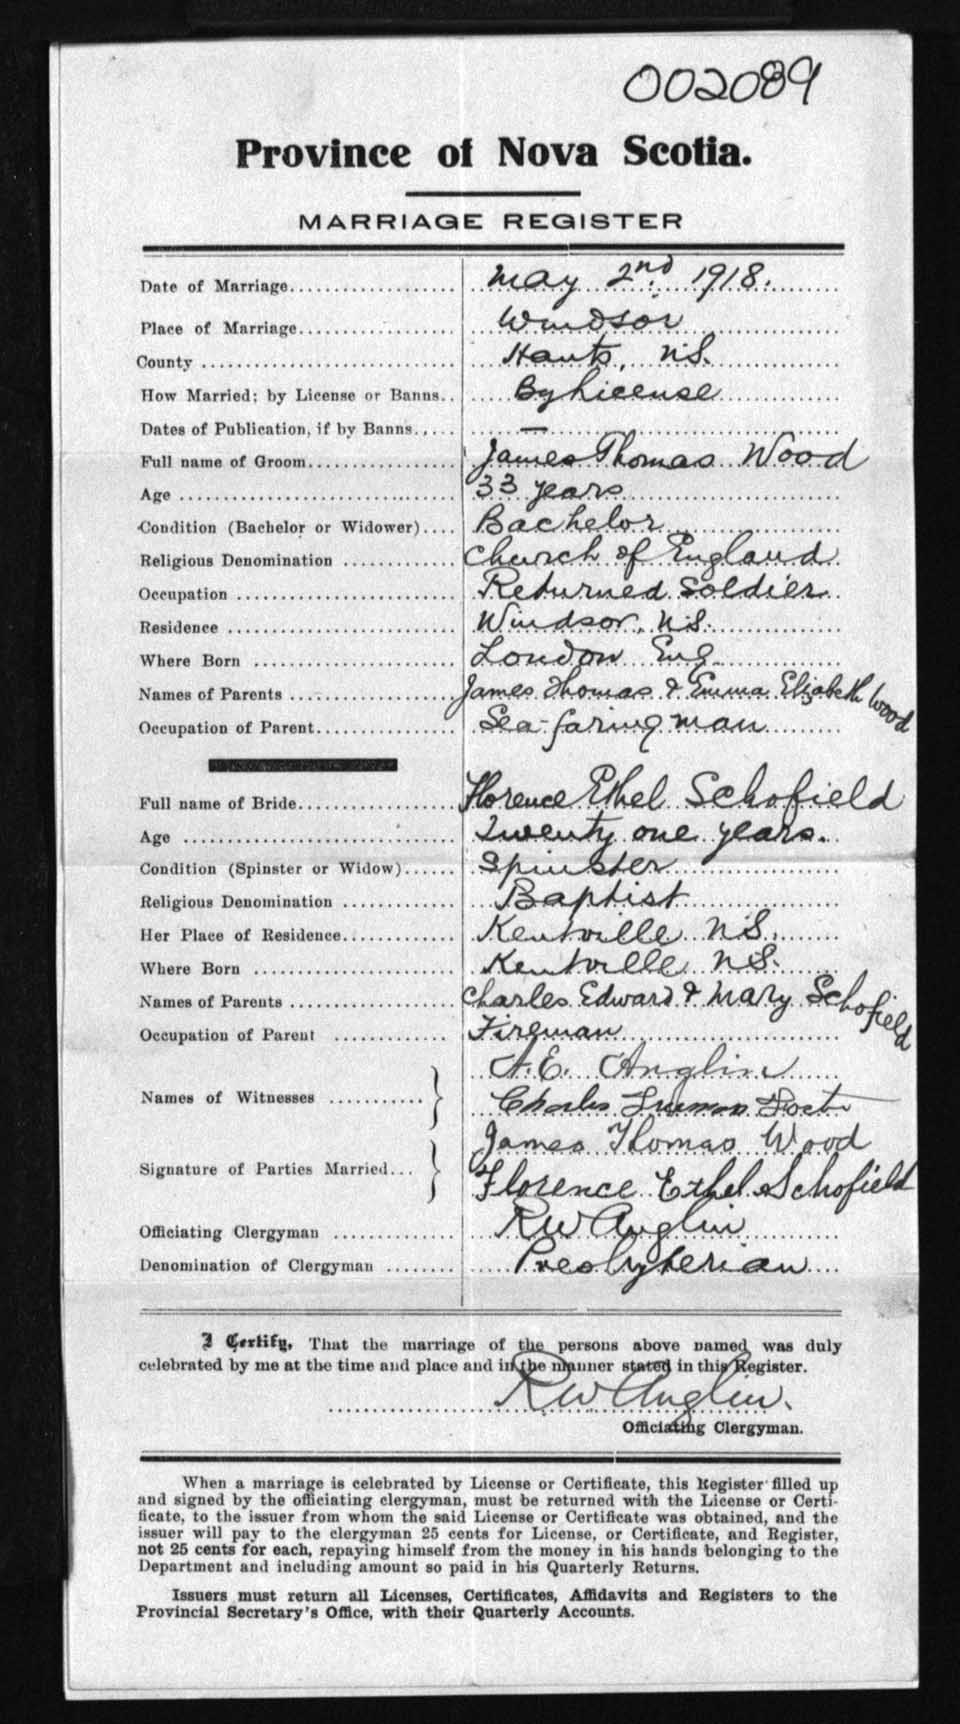 002089
Province of Nova Scotia.
MARRIAGE REGISTER
Date of Marriage.................... May 2nd. 1918.
Place of Marriage................... Windsor
County .............................. Hants, N.S.
How Married; by License or Banns.. By License
Dates of Publication, if by Banns..... —
Full name of Groom.................. James Thomas Wood
Age ................................. 33 years
Condition (Bachelor or Widower).... Bachelor
Religious Denomination ............. Church of England
Occupation .......................... Returned Soldier
Residence ........................... Windsor, N.S.
Where Born ........................ London Eng.
Names of Parents .................... James Thomas & Emma Elizabeth Wood
Occupation of Parent................. Sea-faring man
Full name of Bride................... Florence Ethel Schofield
Age ................................. Twenty one years.
Condition (Spinster or Widow)...... Spinster
Religious Denomination ............. Baptist
Her Place of Residence.............. Kentville N.S.
Where Born ........................ Kentville N.S.
Names of Parents .................... Charles Edward & Mary Schofield
Occupation of Parent .............. Fireman
Names of Witnesses ............ } A.E. Anglin
Charles
Signature of Parties Married... } James Thomas Wood
Florence Ethel Schofield
Officiating Clergyman .............. RW Anglin
Denomination of Clergyman ........ Presbyterian
I Certify, That the marriage of the persons above named was duly
celebrated by me at the time and place and in the manner stated in this Register.
RW Anglin.
Officiating Clergyman.
When a marriage is celebrated by License or Certificate, this Register filled up
and signed by the officiating clergyman, must be returned with the License or Certi-
ficate, to the issuer from whom the said License or Certificate was obtained, and the
issuer will pay to the clergyman 25 cents for License, or Certificate, and Register,
not 25 cents for each, repaying himself from the money in his hands belonging to the
Department and including amount so paid in his Quarterly Returns.
Issuers must return all Licenses, Certificates, Affidavits and Registers to the
Provincial Secretary's Office, with their Quarterly Accounts.